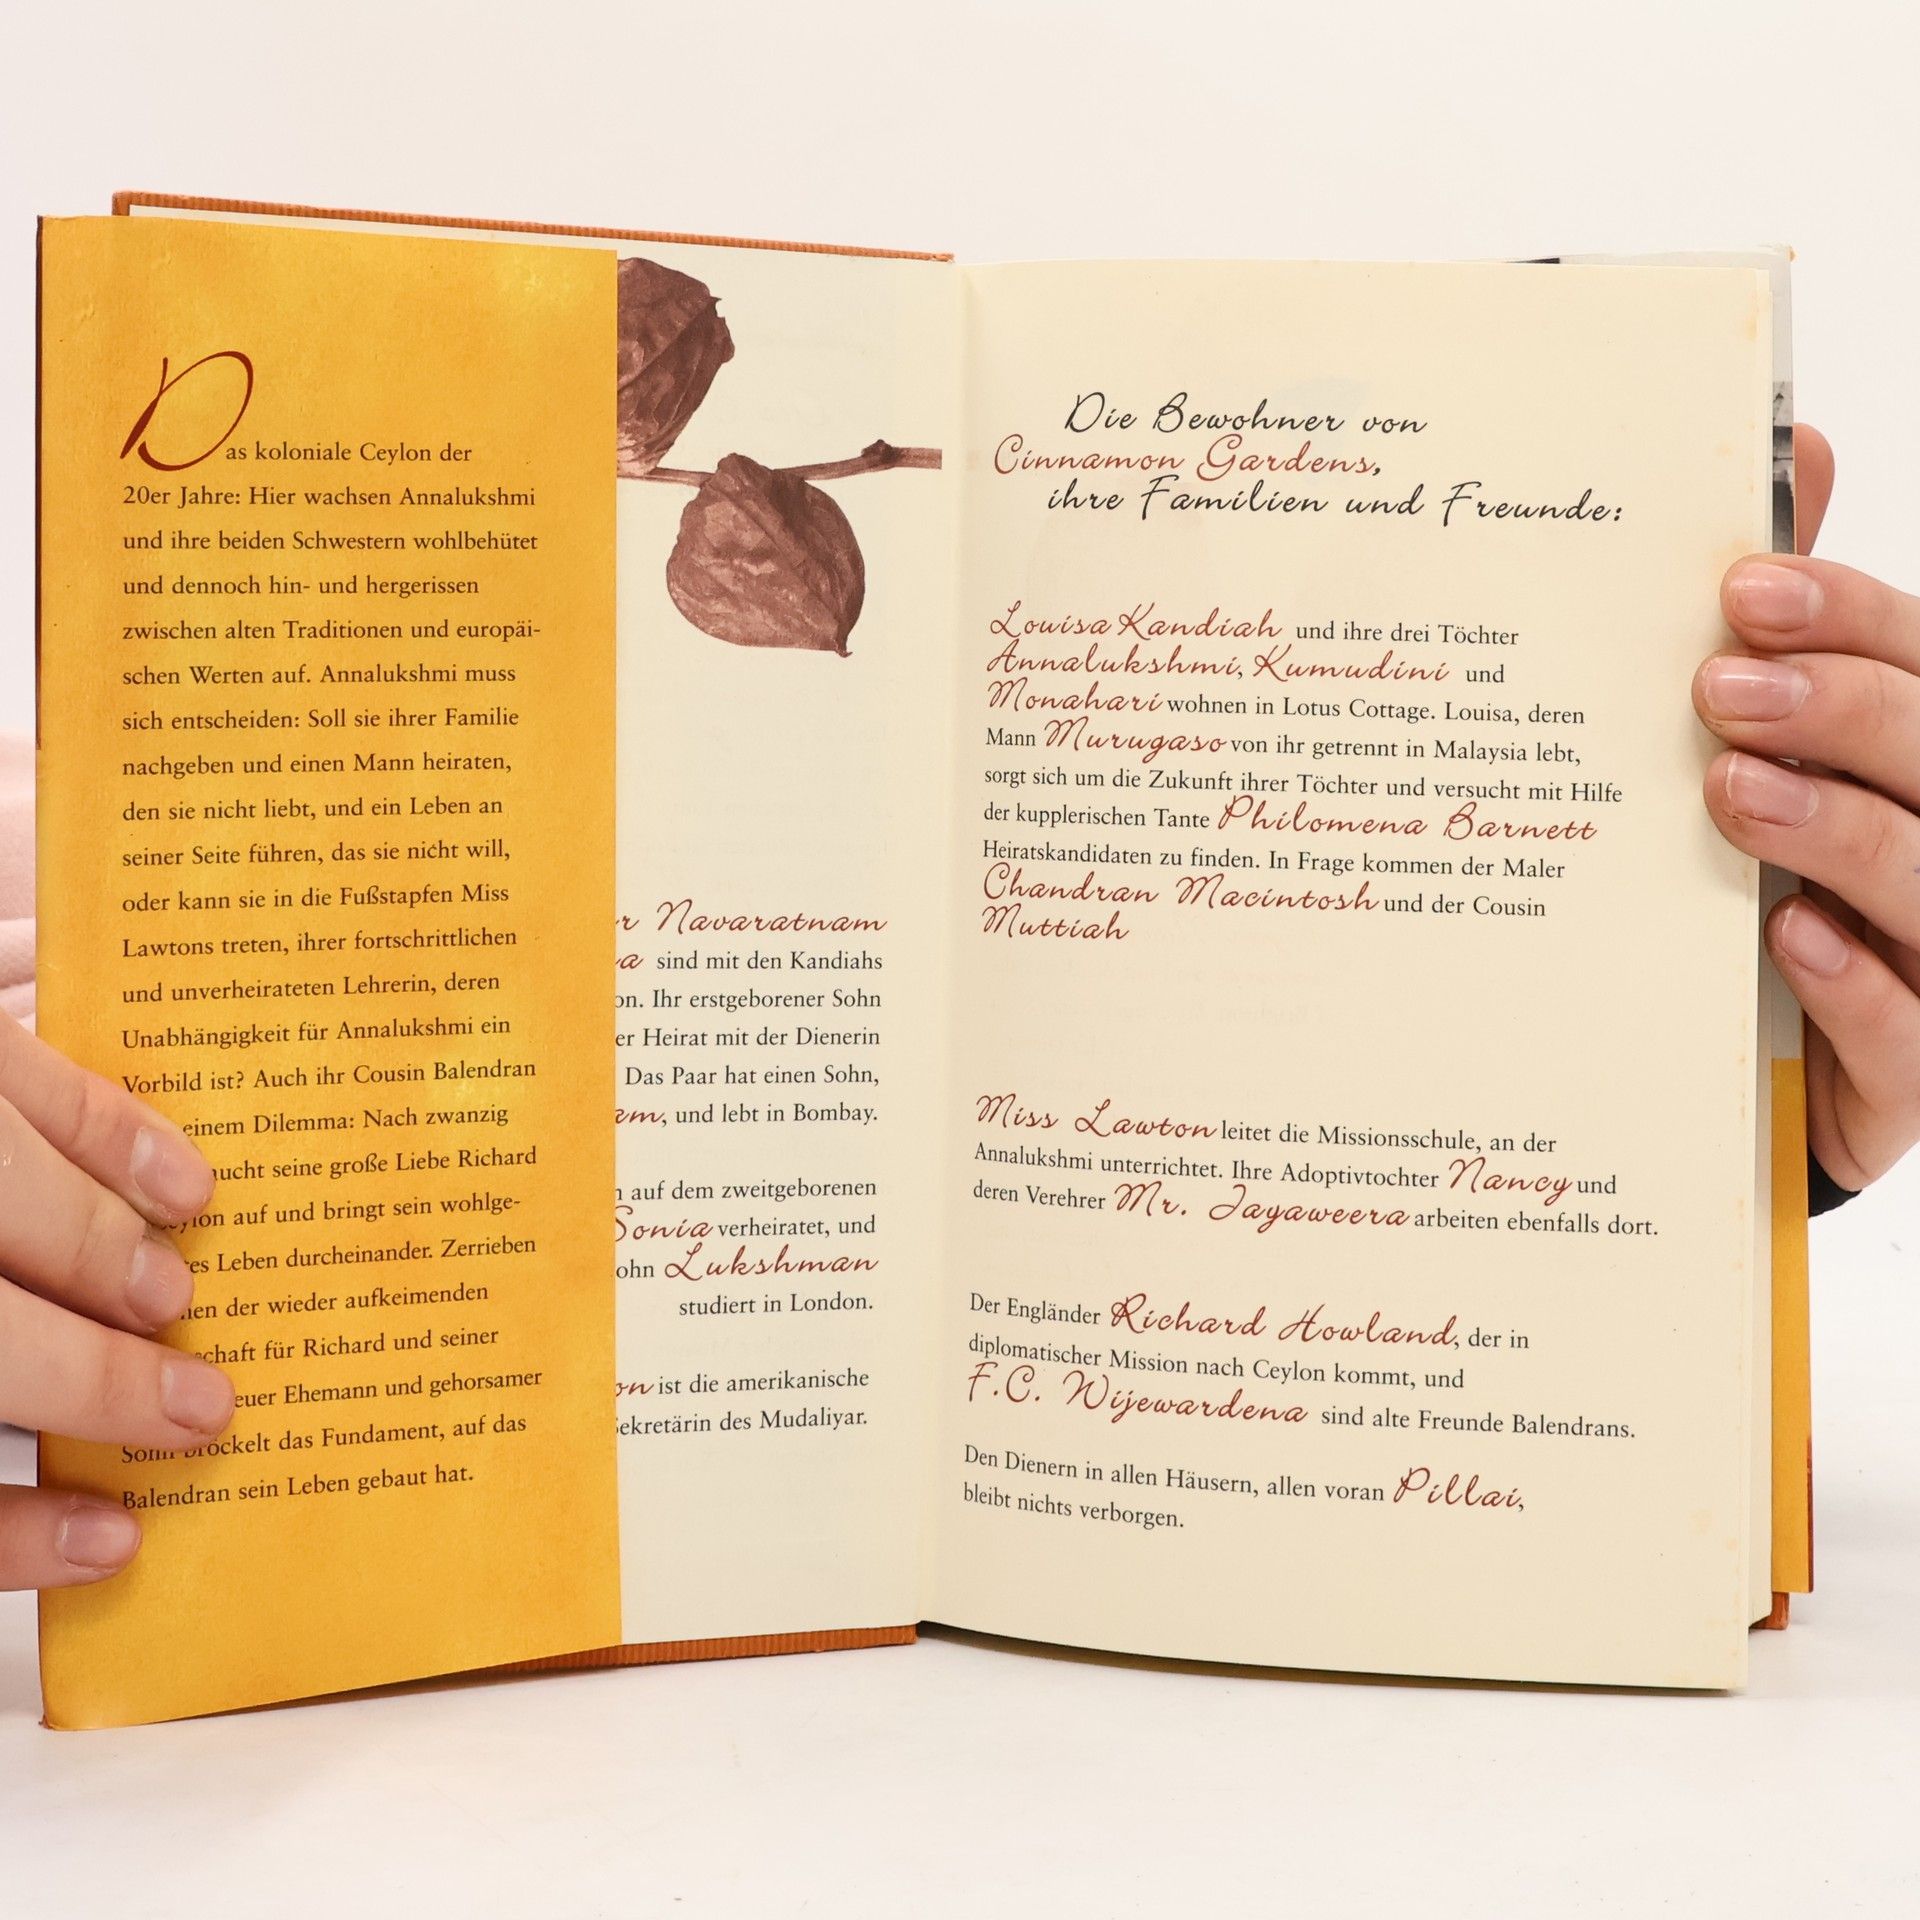 Das koloniale Ceylon der
20er Jahre: Hier wachsen Annalukshmi
und ihre beiden Schwestern wohlbehütet
und dennoch hin- und hergerissen
zwischen alten Traditionen und europäi-
schen Werten auf. Annalukshmi muss
sich entscheiden: Soll sie ihrer Familie
nachgeben und einen Mann heiraten,
den sie nicht liebt, und ein Leben an
seiner Seite führen, das sie nicht will,
oder kann sie in die Fußstapfen Miss
Lawtons treten, ihrer fortschrittlichen
und unverheirateten Lehrerin, deren
Unabhängigkeit für Annalukshmi ein
Vorbild ist? Auch ihr Cousin Balendran
einem Dilemma: Nach zwanzig
seine große Liebe Richard
auf und bringt sein wohlge-
Leben durcheinander. Zerrieben
der wieder aufkeimenden
für Richard und seiner
Ehemann und gehorsamer
Sohn bröckelt das Fundament, auf das
Balendran sein Leben gebaut hat.
Navaratnam
sind mit den Kandiahs
Ihr erstgeborener Sohn
Heirat mit der Dienerin
Das Paar hat einen Sohn,
und lebt in Bombay.
auf dem zweitgeborenen
Sonia verheiratet, und
Lukshman
studiert in London.
ist die amerikanische
Sekretärin des Mudaliyar.
Die Bewohner von
Cinnamon Gardens,
ihre Familien und Freunde:
Louisa Kandiah und ihre drei Töchter
Annalukshmi, Kumudini und
Monahari wohnen in Lotus Cottage. Louisa, deren
Mann Murugaso von ihr getrennt in Malaysia lebt,
sorgt sich um die Zukunft ihrer Töchter und versucht mit Hilfe
der kupplerischen Tante Philomena Barnett
Heiratskandidaten zu finden. In Frage kommen der Maler
Chandran Macintosh und der Cousin
Muttiah
Miss Lawton leitet die Missionsschule, an der
Annalukshmi unterrichtet. Ihre Adoptivtochter Nancy und
deren Verehrer Mr. Jayaweera arbeiten ebenfalls dort.
Der Engländer Richard Howland, der in
diplomatischer Mission nach Ceylon kommt, und
F.C. Wijewardena sind alte Freunde Balendrans.
Den Dienern in allen Häusern, allen voran Pillai,
bleibt nichts verborgen.